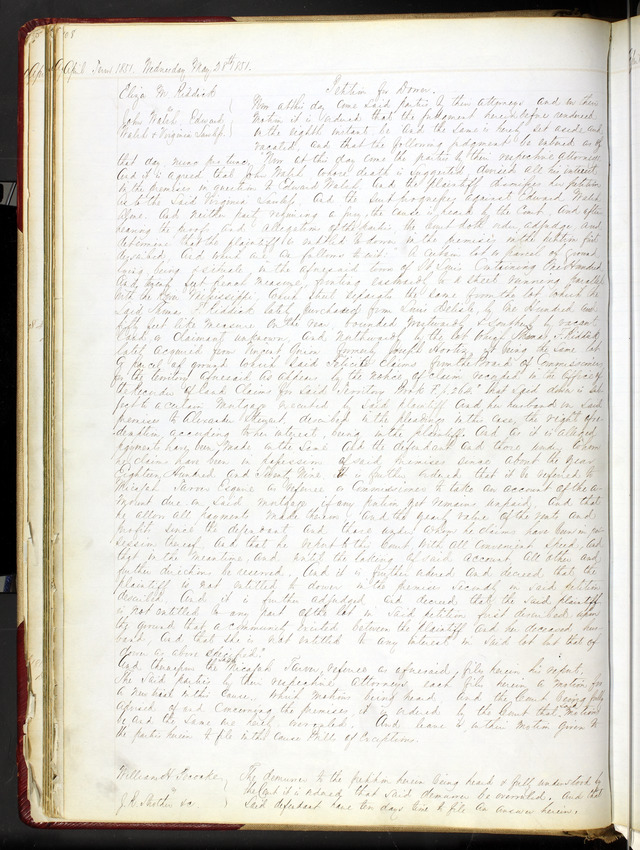 08
April Term 1851. Wednesday May 28th 1851.
Eliza M. Riddick
vs
John Walsh, Edward
Walsh & Virginia
Petition for Dower.
Now at this day come said parties by their attorneys and on their
motion it is ordered that the judgment heretofore rendered
on the eighth instant be and the same is hereby set aside and
vacated, and that the following judgment be entered as of
that day nunc pro tunc. Now at this day come the parties by their respective attorneys
And it is agreed that John Walsh whose death is suggested, devised all his interest
in the premises in question to Edward Walsh And the Plaintiff dismisses her petition
as to the said Virginia And the suit progresses against Edward Walsh
alone. And neither party requiring a jury the cause is heard by the Court. And after
hearing the proof and allegations of the parties the Court doth order, adjudge and
determine that the plaintiff is entitled to dower in the premises in the petition first
described, And which are as follows to wit: A certain lot or parcel of ground
lying being & situate in the aforesaid town of St Louis Containing One Hundred
And twenty feet french measure, fronting eastwardly to a street running parallel
with the river Mississippi, which street separates the same from the lot which the
said Thomas F. Riddick lately purchased from Louis by One Hundred and
fifty feet like measure in the rear, bounded Westwardly & Southerly by vacant
land or claimant unknown, And Northwardly by the lot Thomas F. Riddick
lately acquired from Vincent formerly Joseph being the same lot
& parcel of ground which said claims from the board of Commissioners
in the
the recorder of Land Claims for said Territory Book F. p.
ject to a certain Mortgage executed by said plaintiff and her husband on said
premises to Alexander the pleadings in the case, the right of re-
demption according to her interest, being in the plaintiff. And as it is alleged
payments have been made on the same And the defendant and those under whom
he claims have been in possession of said premises since about the year
Eighteen Hundred and Twenty Nine, it is further ordered that it be referred to
Micajah Tarver Esquire as Referee or Commissioner to take an account of the am-
ount due on said Mortgage if any portion yet remains unpaid And that
he allow all payments made thereon and the yearly value of the rents and
profits since the defendant and those under whom he claims have been in pos-
session thereof, And that he report to the Court with all convenient speed, And
that in the meantime And until the taking of said account All other and
further directions be reserved. And it is further ordered And decreed that the
plaintiff is not entitled to dower in the premises secondly in said petition
described. And it is further adjudged and decreed that the said plaintiff
is not entitled to any part of the lot in said petition first described upon
the ground that a community existed between the plaintiff and her deceased hus-
band. And that she is not entitled to any interest in said lot but that of
dower as above specified.
And thereupon the said Micajah Tarver, referee as aforesaid, files herein his report.
The said parties by their respective Attorneys each file herein a motion for
a new trial in this cause, which motions being heard and the Court being fully
advised of and concerning the premises it is ordered by the Court that said Motions
be and the same are hereby overruled. And leave is on their motion given to
the parties herein to file in this cause Bills of Exceptions.
William H.
vs
J. R. Shotter &c.
The demurrer to the petition herein being heard & fully understood by
the Court it is ordered that said demurrer be overruled, And that
said defendant have ten days time to file an answer herein.